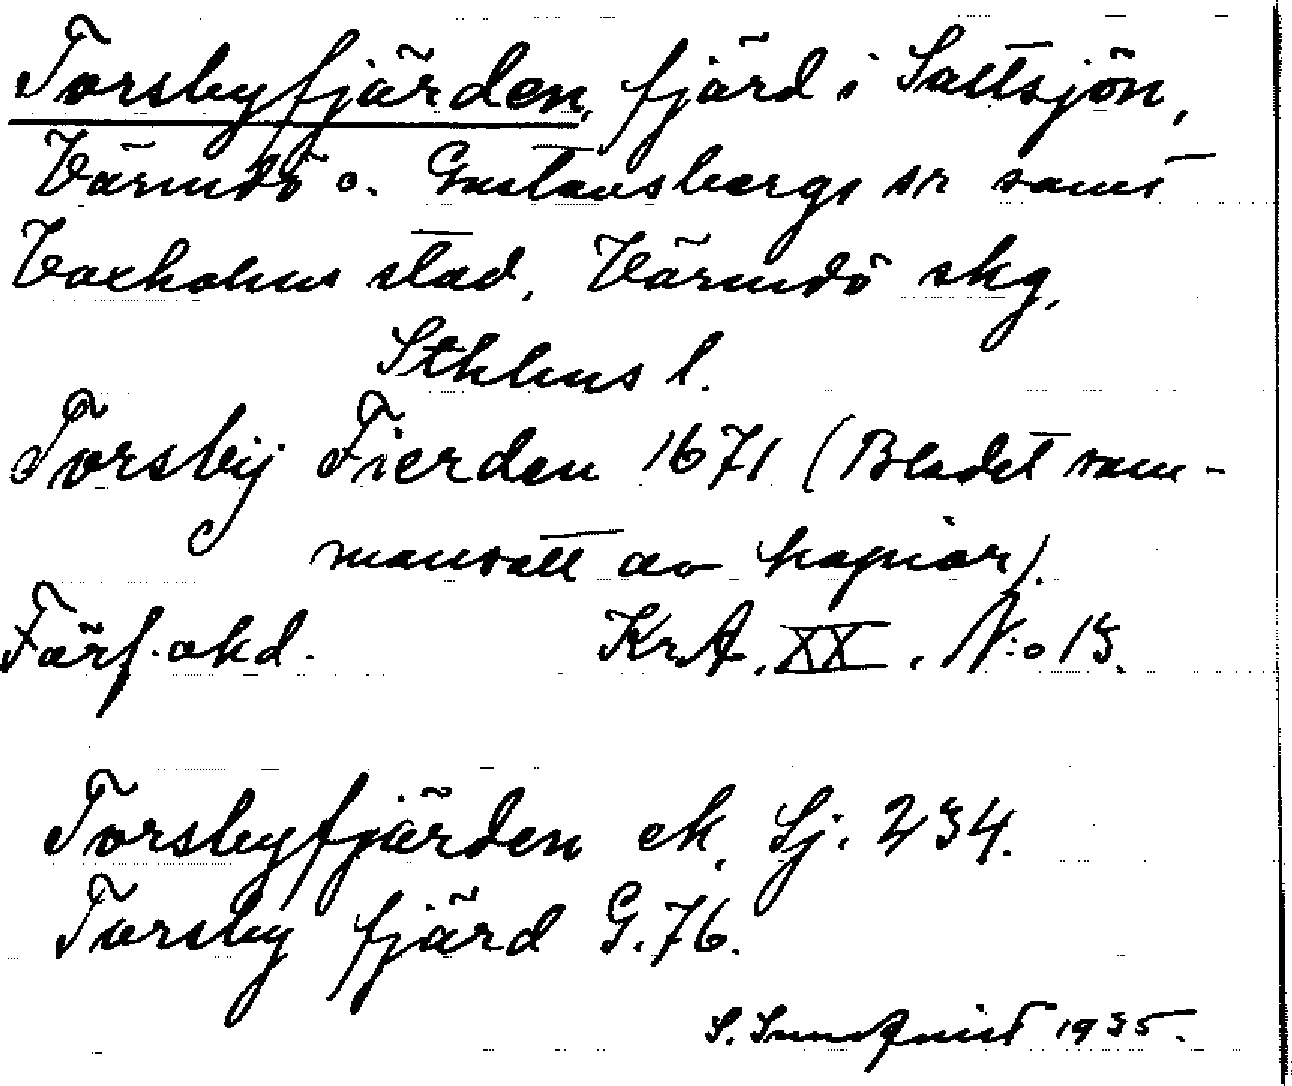 Torsbyfjärden, fjärd i Saltsjön,
Värmdö o. Gustavsbergs sn samt
Vaxholms stad, Värmdö skg,
Sthlms l.
Torsbÿ Fierden 1671 (Bladet sam-
mansatt av kopior).
Förf. okd. KrA. XX. N:o 13.
Torsbyfjärden ek, Sj. 234.
Torsby fjärd G. 76.
S. Sundqvist 1935.